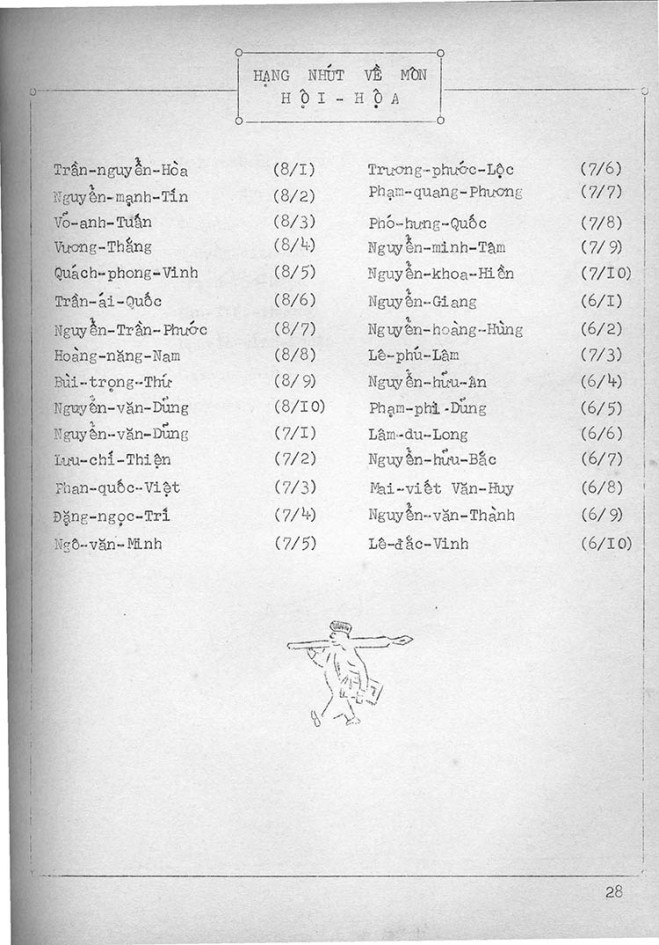 HẠNG NHÚT VỀ MÔN
HỘI-HỌA
Trần-nguyễn-Hòa (8/I)
Nguyễn-mạnh-Tín (8/2)
Võ-anh-Tuấn (8/3)
Vương-Thắng (8/4)
Quách-phong-Vinh (8/5)
Trần-ái-Quốc (8/6)
Nguyễn-Trần-Phước (8/7)
Hoàng-năng-Nam (8/8)
Bùi-trọng-Thứ (8/9)
Nguyễn-văn-Dũng (8/I0)
Nguyễn-văn-Dũng (7/I)
Lưu-chí-Thiện (7/2)
Phan-quốc-Việt (7/3)
Đặng-ngọc-Trí (7/4)
Ngô-văn-Minh (7/5)
Trương-phước-Lộc (7/6)
Phạm-quang-Phương (7/7)
Phó-hưng-Quốc (7/8)
Nguyễn-minh-Tâm (7/9)
Nguyễn-khoa-Hiền (7/I0)
Nguyễn-Giang (6/I)
Nguyễn-hoàng-Hùng (6/2)
Lê-phú-Lâm (7/3)
Nguyễn-hữu-Ân (6/4)
Phạm-phi-Dũng (6/5)
Lâm-du-Long (6/6)
Nguyễn-hữu-Bắc (6/7)
Mai-viết Văn-Huy (6/8)
Nguyễn-văn-Thành (6/9)
Lê-đắc-Vinh (6/I0)
28